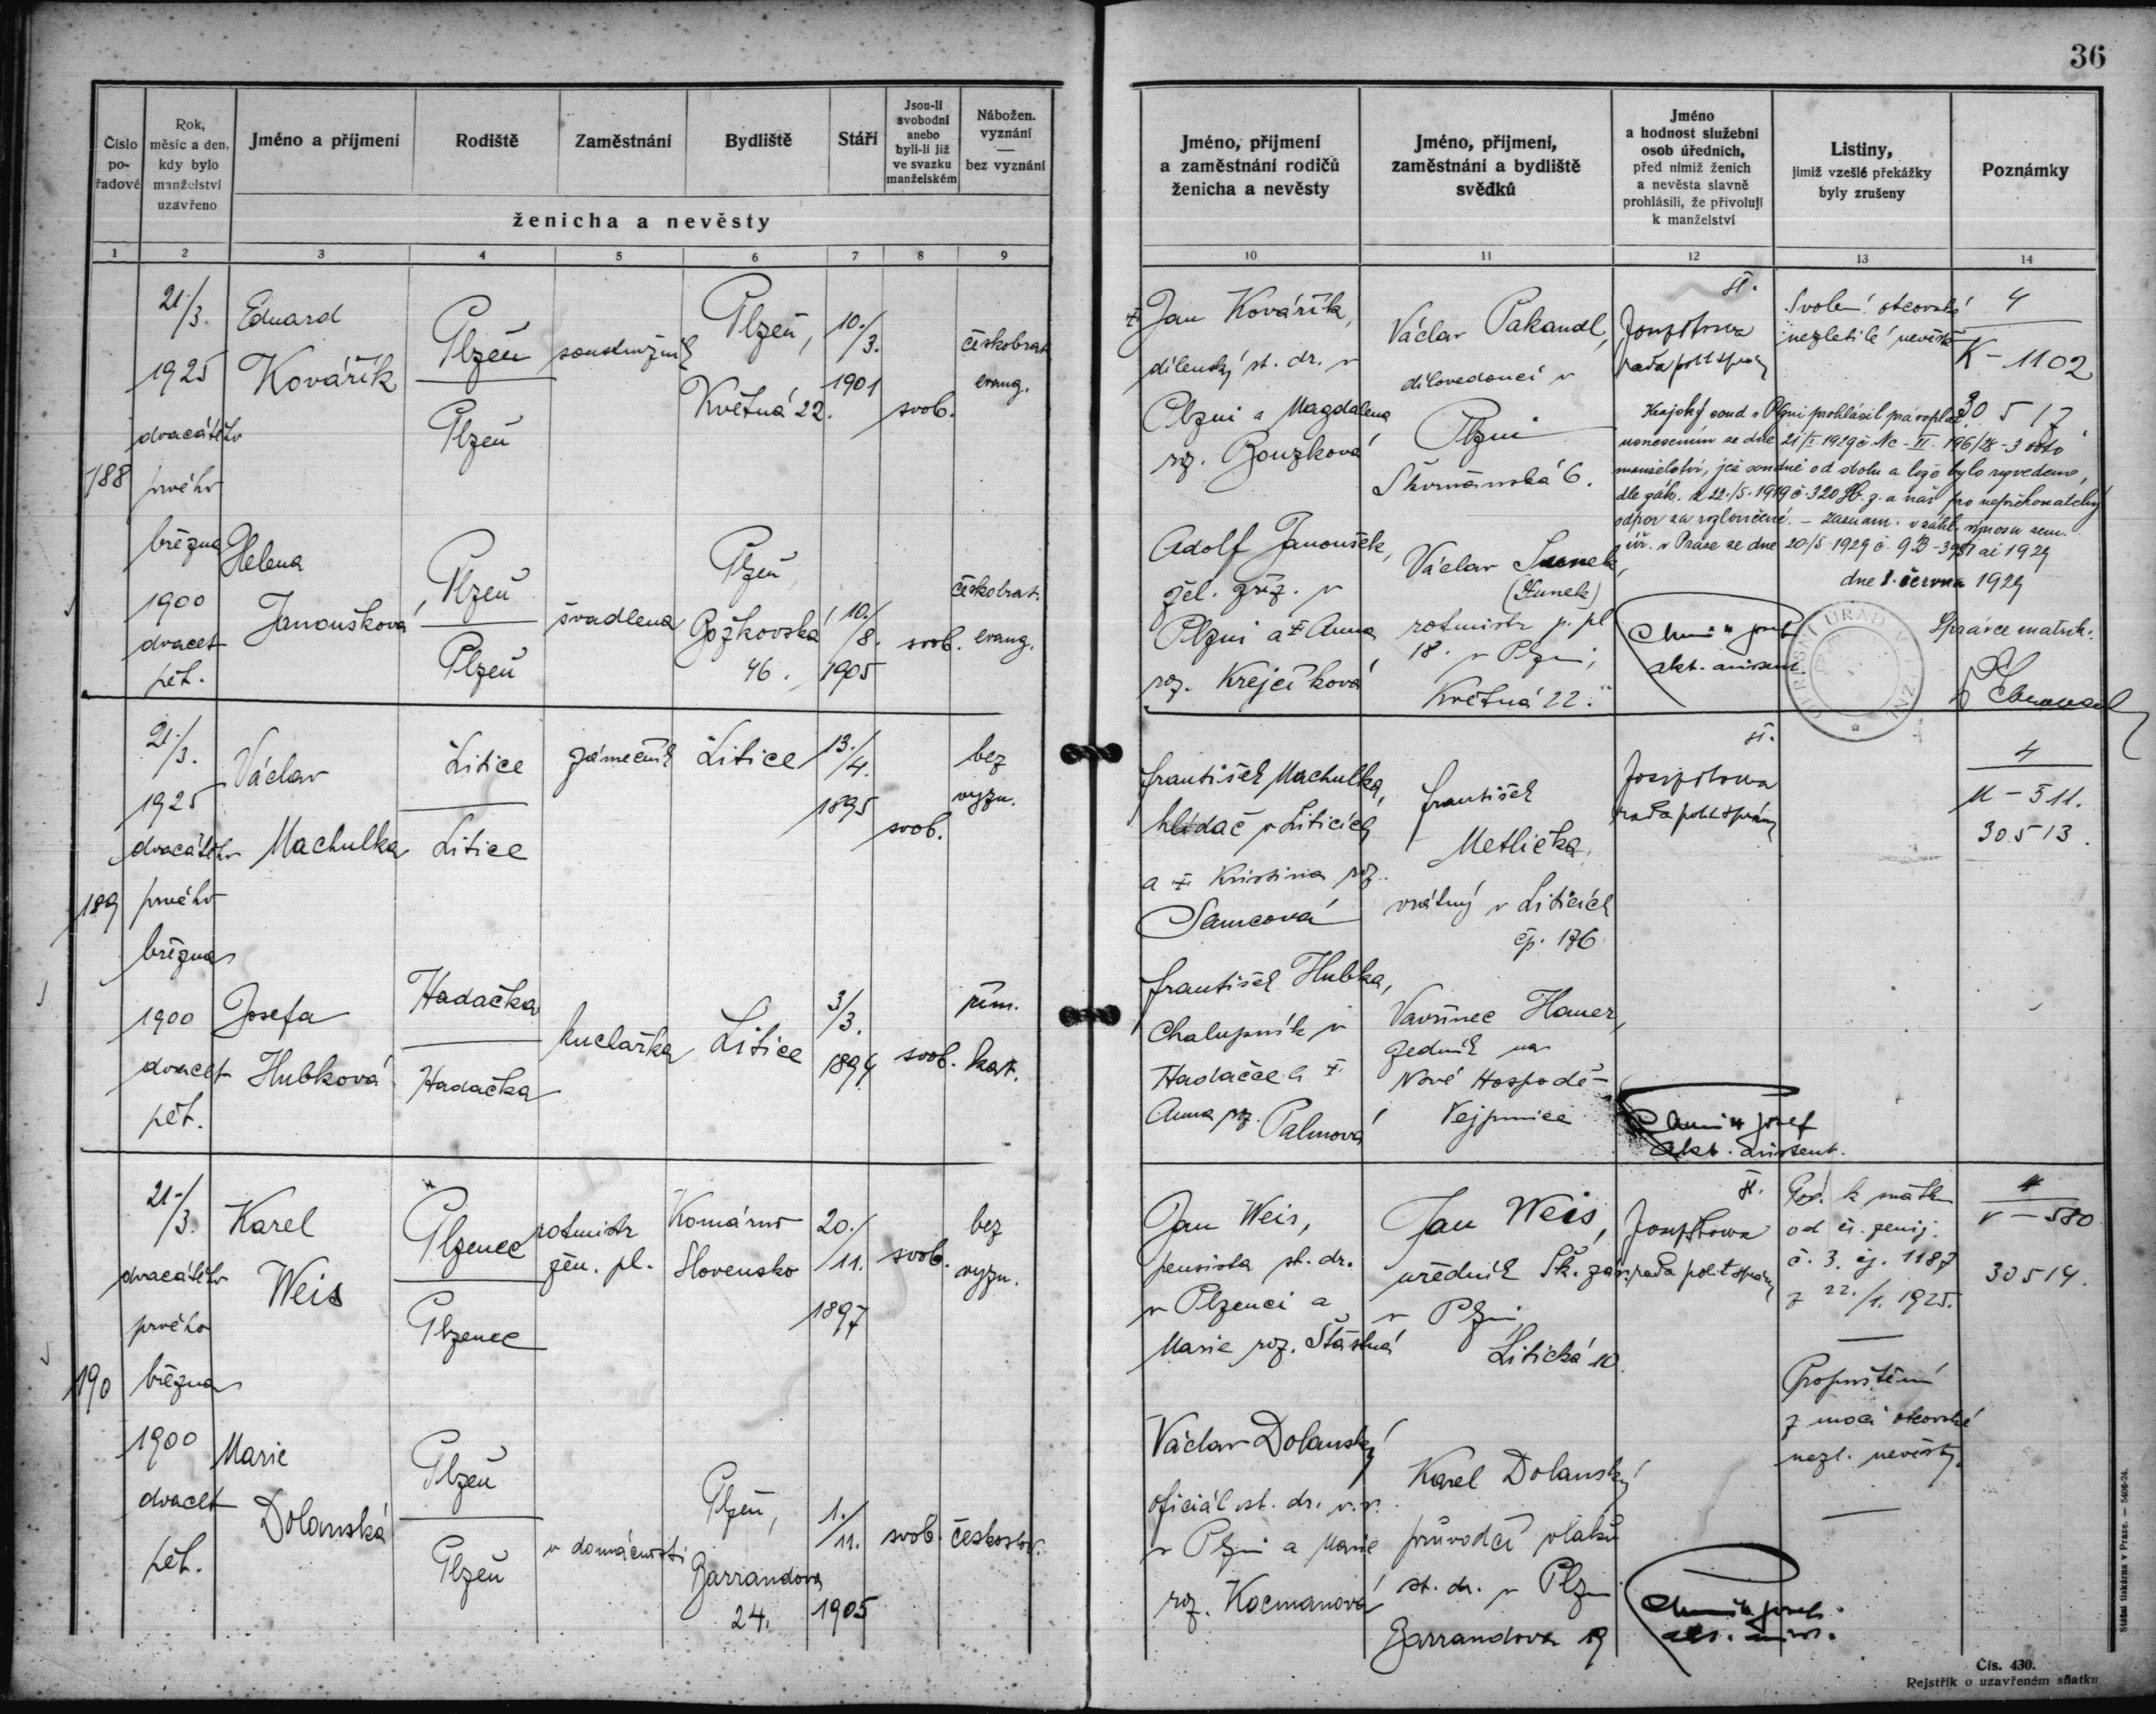 36
Číslo pořadové
Rok, měsíc a den, kdy bylo manželství uzavřeno
Jméno a příjmení
Rodiště
Zaměstnání
Bydliště
Stáří
Jsou-li svobodni anebo byli-li již ve svazku manželském
Nábožen. vyznání — bez vyznání
ženicha a nevěsty
Jméno, příjmení a zaměstnání rodičů ženicha a nevěsty
Jméno, příjmení, zaměstnání a bydliště svědků
Jméno a hodnost služební osob úředních, před nimiž ženich a nevěsta slavně prohlásili, že přivolují k manželství
Listiny, jimiž vzešlé překážky byly zrušeny
Poznámky
1 2 3 4 5 6 7 8 9 10 11 12 13 14
188
21./3.
1925
dvacátého
prvého
března
1900
dvacet
pět.
Eduard
Kovářík
Plzeň
Plzeň
soustružník
Plzeň,
Květná 22.
10./3.
1901
svob.
českobrat.
evang.
Jan Kovářík,
dílenský st. dr. v
Plzni a Magdalena
roz. Bouzková
Václav Pakandl,
dílovedoucí v
Plzni
Skvrňanská 6.
rada polit. správy
Svolení otcovské
nezletilé nevěstě
4
K - 1102
30 517
Krajský soud v Plzni prohlásil pravoplat.
usnesením ze dne 21/I 1929 č. Nc - VI - 196/28 - 3 toto
manželství, jež soudně od stolu a lože bylo rozvedeno,
dle zák. z 22./5. 1919 č. 320 Sb. z. a nař. pro nepřekonatelný
odpor za rozloučené. - Zaznam. v zákl. výnosu zem.
úř. v Praze ze dne 20/5 1929 č. 9B - 3951 ai 1929
dne 8. června 1929
Správce matrik:
Helena
Janoušková
Plzeň
Plzeň
švadlena
Plzeň,
Božkovská
46.
10./8.
1905
svob.
českobrat.
evang.
Adolf Janoušek,
žel. zříz. v
Plzni a Anna
roz. Krejčíková
Václav
(Sunek)
rotmistr p. pl
18. v Plzni,
Květná 22.
akt. asistent
189
21./3.
1925
dvacátého
prvého
března
1900
dvacet
pět.
Václav
Machulka
Litice
Litice
zámečník
Litice
13./4.
1895
svob.
bez
vyzn.
František Machulka,
hlídač v Liticích
a Kristina roz.
Samcová
František
Metlička,
vrátný v Liticích
čp. 176
rada polit. správy
4
M - 511.
30513.
Josefa
Hubková
Hadačka
Hadačka
kuchařka
Litice
3/3.
1894
svob.
řím.
kat.
František Hubka,
Chalupník v
Hadačce a
Anna roz. Palmová
Vavřinec Hauer,
zedník na
Nové Hospodě-
Vejprnice
akt. asistent.
190
21./3.
dvacátého
prvého
března
1900
dvacet
pět.
Karel
Weis
Plzenec
Plzenec
rotmistr
žen. pl.
Komárno
Slovensko
20./11.
1897
svob.
bez
vyzn.
Jan Weis,
pensista st. dr.
v Plzenci a
Marie roz. Šťastná
Jan Weis,
úředník Šk. záv.
v Plzni,
Litická 10.
rada polit. správy
Pov. k sňatku
od čs. ženij.
č. 3. čj. 1187
z 22./1. 1925.
4
V - 580
30514.
Marie
Dolanská
Plzeň
Plzeň
v domácnosti
Plzeň,
Barrandova
24.
1./11.
1905
svob.
českoslov.
Václav Dolanský
oficiál st. dr. v.v.
v Plzni a Marie
roz. Kocmanová
Karel Dolanský
průvodčí vlaků
st. dr. v Plzni
Barrandova 19
Propuštění
z moci otcovské
nezl. nevěsty.
Státní tiskárna v Praze. — 5406-24.
Čís. 430.
Rejstřík o uzavřeném sňatku